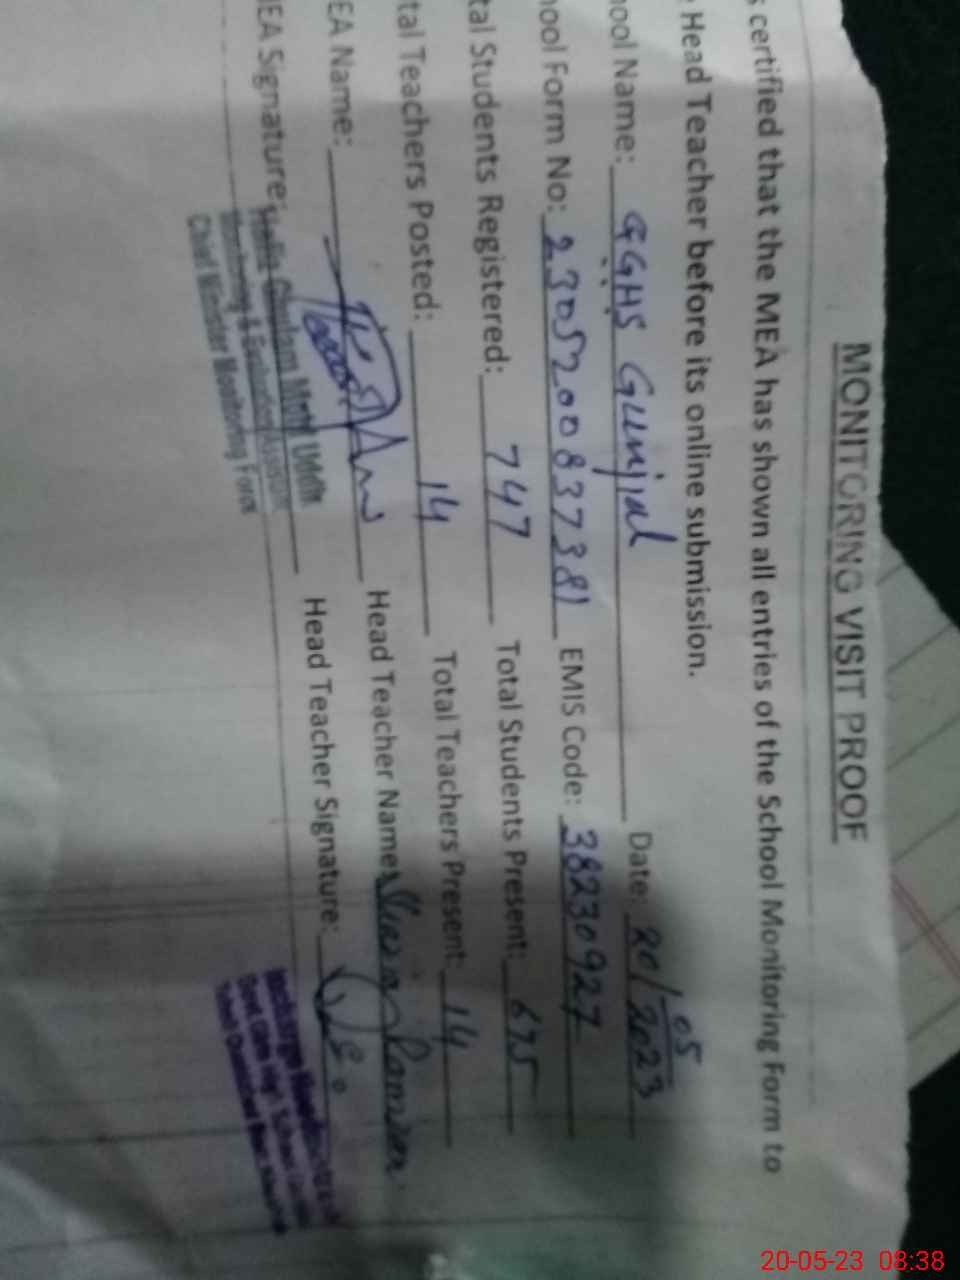 MONITORING VISIT PROOF
s certified that the MEA has shown all entries of the School Monitoring Form to
Head Teacher before its online submission.
ool Name: GGHS Gunjial Date: 20/05 2023
ool Form No: 2305200837381 EMIS Code: 38230927
tal Students Registered: 747 Total Students Present: 675
tal Teachers Posted: 14 Total Teachers Present: 14
EA Name: Head Teacher Name:
EA Signature: Head Teacher Signature:
Monitoring & Evaluation Assistant
Chief Minister Monitoring Force
Incharge
Govt Girls High School
20-05-23 08:38